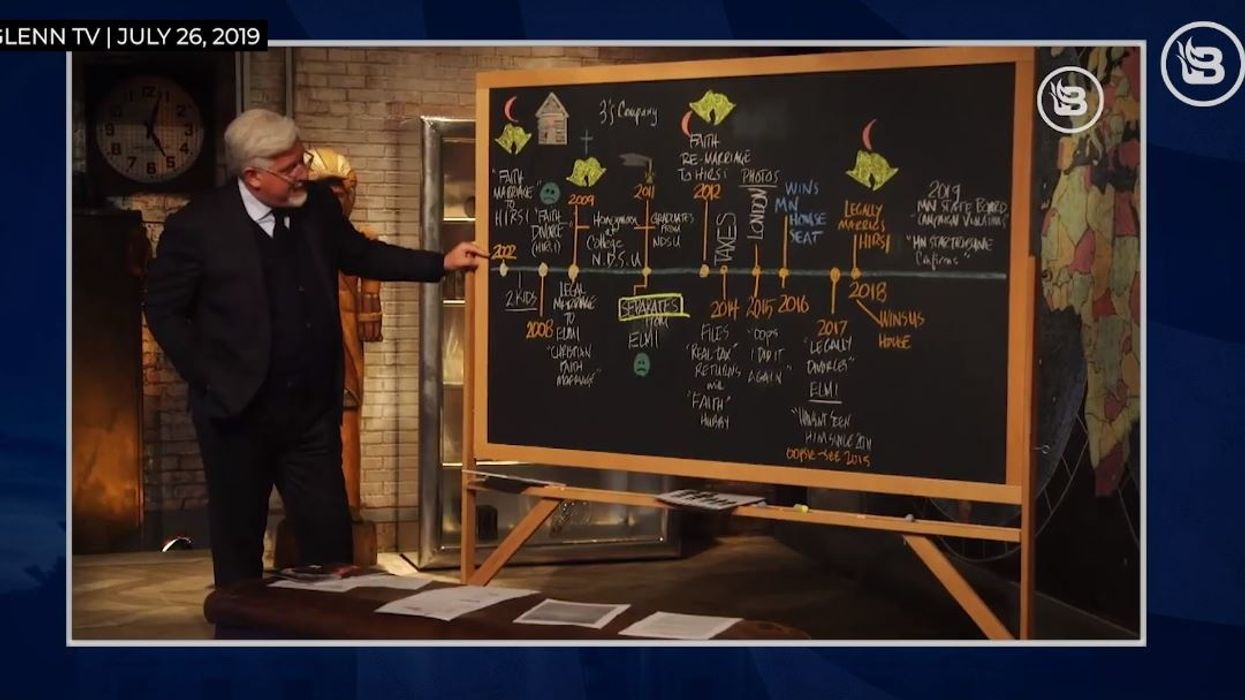 GLENN TV | JULY 26, 2019
B
B
3's Company
"FAITH
MARRIAGE"
TO
HIRSI
2002
2 KIDS
"FAITH
DIVORCE"
(HIRSI)
2008
2009
LEGAL
MARRIAGE
TO
ELMI
"CHRISTIAN
FAITH
MARRIAGE"
Honeymoon
at
College
N.D.S.U
2011
GRADUATES
FROM
NDSU
SEPARATES
FROM
ELMI
FAITH
RE-MARRIAGE
TO HIRSI
2012
TAXES
2014
FILES
"REAL TAX"
RETURNS
"FAITH"
HUBBY
PHOTOS
LONDON
2015
"OOPS
I DID IT
AGAIN"
WINS
MN
HOUSE
SEAT
2016
2017
"LEGALLY
DIVORCES"
ELMI
"HAVEN'T SEEN
HIM SINCE 2011
OOPSIE-SEE 2015
LEGALLY
MARRIES
HIRSI
2018
WINS US
HOUSE
2019
MN STATE BOARD
"CAMPAIGN VIOLATIONS"
"MN STAR TRIBUNE
Confirms"